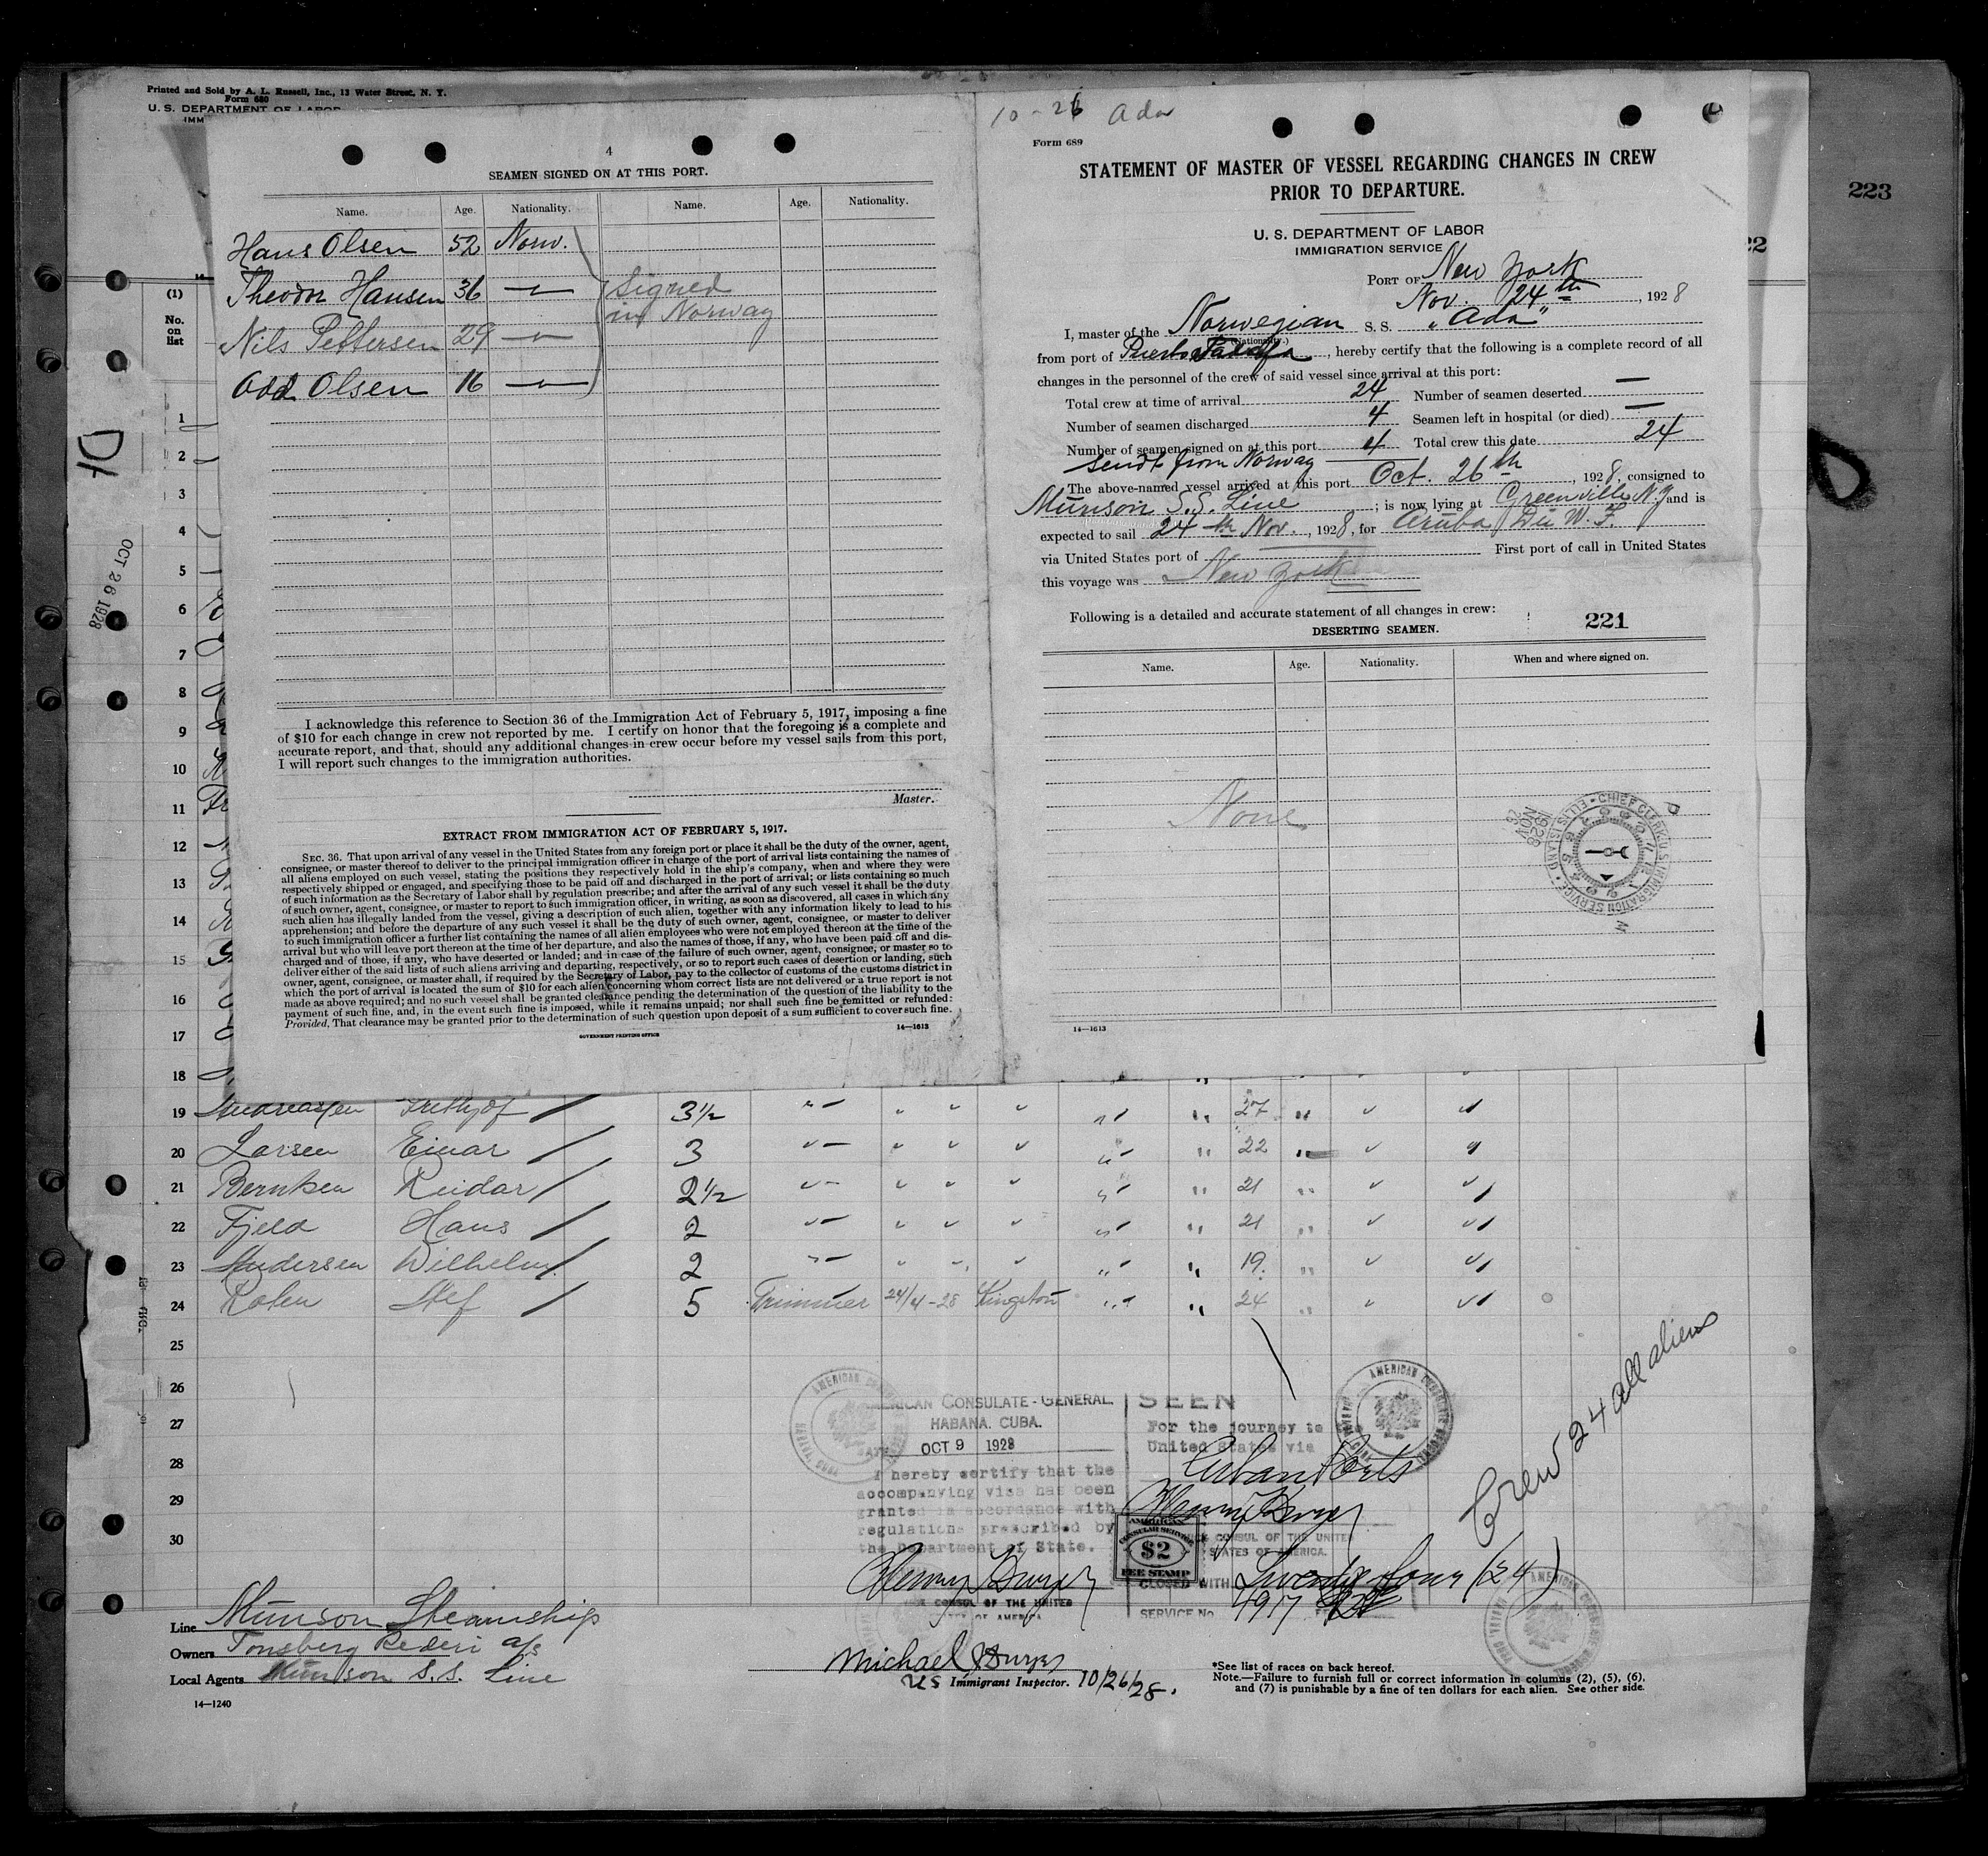 Printed and Sold by A. L. Russell, Inc., 13 Water Street, N. Y.
Form 680
U. S. DEPARTMENT OF LABOR
IMM
4
SEAMEN SIGNED ON AT THIS PORT.
Name. Age. Nationality. Name. Age. Nationality.
Hans Olsen 52 Norw.
Theodor Hansen 36 — " — Signed
in Norway
Nils Pettersen 29 — " —
Odd Olsen 16 — " —
I acknowledge this reference to Section 36 of the Immigration Act of February 5, 1917, imposing a fine
of $10 for each change in crew not reported by me. I certify on honor that the foregoing is a complete and
accurate report, and that, should any additional changes in crew occur before my vessel sails from this port,
I will report such changes to the immigration authorities.
Master.
EXTRACT FROM IMMIGRATION ACT OF FEBRUARY 5, 1917.
SEC. 36. That upon arrival of any vessel in the United States from any foreign port or place it shall be the duty of the owner, agent,
consignee, or master thereof to deliver to the principal immigration officer in charge of the port of arrival lists containing the names of
all aliens employed on such vessel, stating the positions they respectively hold in the ship's company, when and where they were
respectively shipped or engaged, and specifying those to be paid off and discharged in the port of arrival; or lists containing so much
of such information as the Secretary of Labor shall by regulation prescribe; and after the arrival of any such vessel it shall be the duty
of such owner, agent, consignee, or master to report to such immigration officer, in writing, as soon as discovered, all cases in which any
such alien has illegally landed from the vessel, giving a description of such alien, together with any information likely to lead to his
apprehension; and before the departure of any such vessel it shall be the duty of such owner, agent, consignee, or master to deliver
to such immigration officer a further list containing the names of all alien employees who were not employed thereon at the time of the
arrival but who will leave port thereon at the time of her departure, and also the names of those, if any, who have been paid off and dis-
charged and of those, if any, who have deserted or landed; and in case of the failure of such owner, agent, consignee, or master so to
deliver either of the said lists of such aliens arriving and departing, respectively, or so to report such cases of desertion or landing, such
owner, agent, consignee, or master shall, if required by the Secretary of Labor, pay to the collector of customs of the customs district in
which the port of arrival is located the sum of $10 for each alien concerning whom correct lists are not delivered or a true report is not
made as above required; and no such vessel shall be granted clearance pending the determination of the question of the liability to the
payment of such fine, and, in the event such fine is imposed, while it remains unpaid; nor shall such fine be remitted or refunded:
Provided, That clearance may be granted prior to the determination of such question upon deposit of a sum sufficient to cover such fine.
GOVERNMENT PRINTING OFFICE
14—1613
10 - 26 Ada
Form 689
STATEMENT OF MASTER OF VESSEL REGARDING CHANGES IN CREW
PRIOR TO DEPARTURE.
U. S. DEPARTMENT OF LABOR
IMMIGRATION SERVICE
PORT OF New York
Nov. 24th, 1928
I, master of the Norwegian S. S. "Ada"
(Nationality.)
from port of Puerto , hereby certify that the following is a complete record of all
changes in the personnel of the crew of said vessel since arrival at this port:
Total crew at time of arrival 24 Number of seamen deserted —
Number of seamen discharged 4 Seamen left in hospital (or died) —
Number of seamen signed on at this port 4 Total crew this date 24
sendt from Norway
The above-named vessel arrived at this port Oct. 26th, 1928, consigned to
Munson S.S. Line ; is now lying at Greenville N.J and is
expected to sail 24th Nov., 1928, for Aruba Du W. I.
via United States port of First port of call in United States
this voyage was New York
Following is a detailed and accurate statement of all changes in crew:
221
DESERTING SEAMEN.
Name. Age. Nationality. When and where signed on.
None
CHIEF CLERK U.S. IMMIGRATION SERVICE ELLIS ISLAND
1928 NOV 25
14—1613
223
22
(1)
No.
on
list
1
2
3
4
5
6
7
8
9
10
11
12
13
14
15
16
17
18
OCT 26 1928
19 Andreassen Frithjof 3½ 27
20 Larsen Einar 3 22
21 Berntsen Reidar 2½ 21
22 Fjeld Hans 2 21
23 Andersen Wilhelm 2 19
24 Leif 5 Trimmer 24/4-28 Kingston 24
25
26
27
28
29
30
AMERICAN CONSULATE-GENERAL.
HABANA, CUBA.
OCT 9 1928
I hereby certify that the
accompanying visa has been
granted in accordance with
regulations prescribed by
the Department of State.
CONSUL OF THE UNITED
OF AMERICA
SEEN
For the journey to the
United States via
Cuban Ports
CONSUL OF THE UNITED
STATES OF AMERICA.
AMERICAN
CONSULAR SERVICE
$2
FEE STAMP
CLOSED WITH Twenty four (24)
SERVICE No. 4917
Crew 24 all aliens
Line Munson Steamship
Owners Tonsberg Rederi a/s
Local Agents Munson S.S. Line
14—1240
Michael
US Immigrant Inspector. 10/26/28.
*See list of races on back hereof.
Note.—Failure to furnish full or correct information in columns (2), (5), (6),
and (7) is punishable by a fine of ten dollars for each alien. See other side.